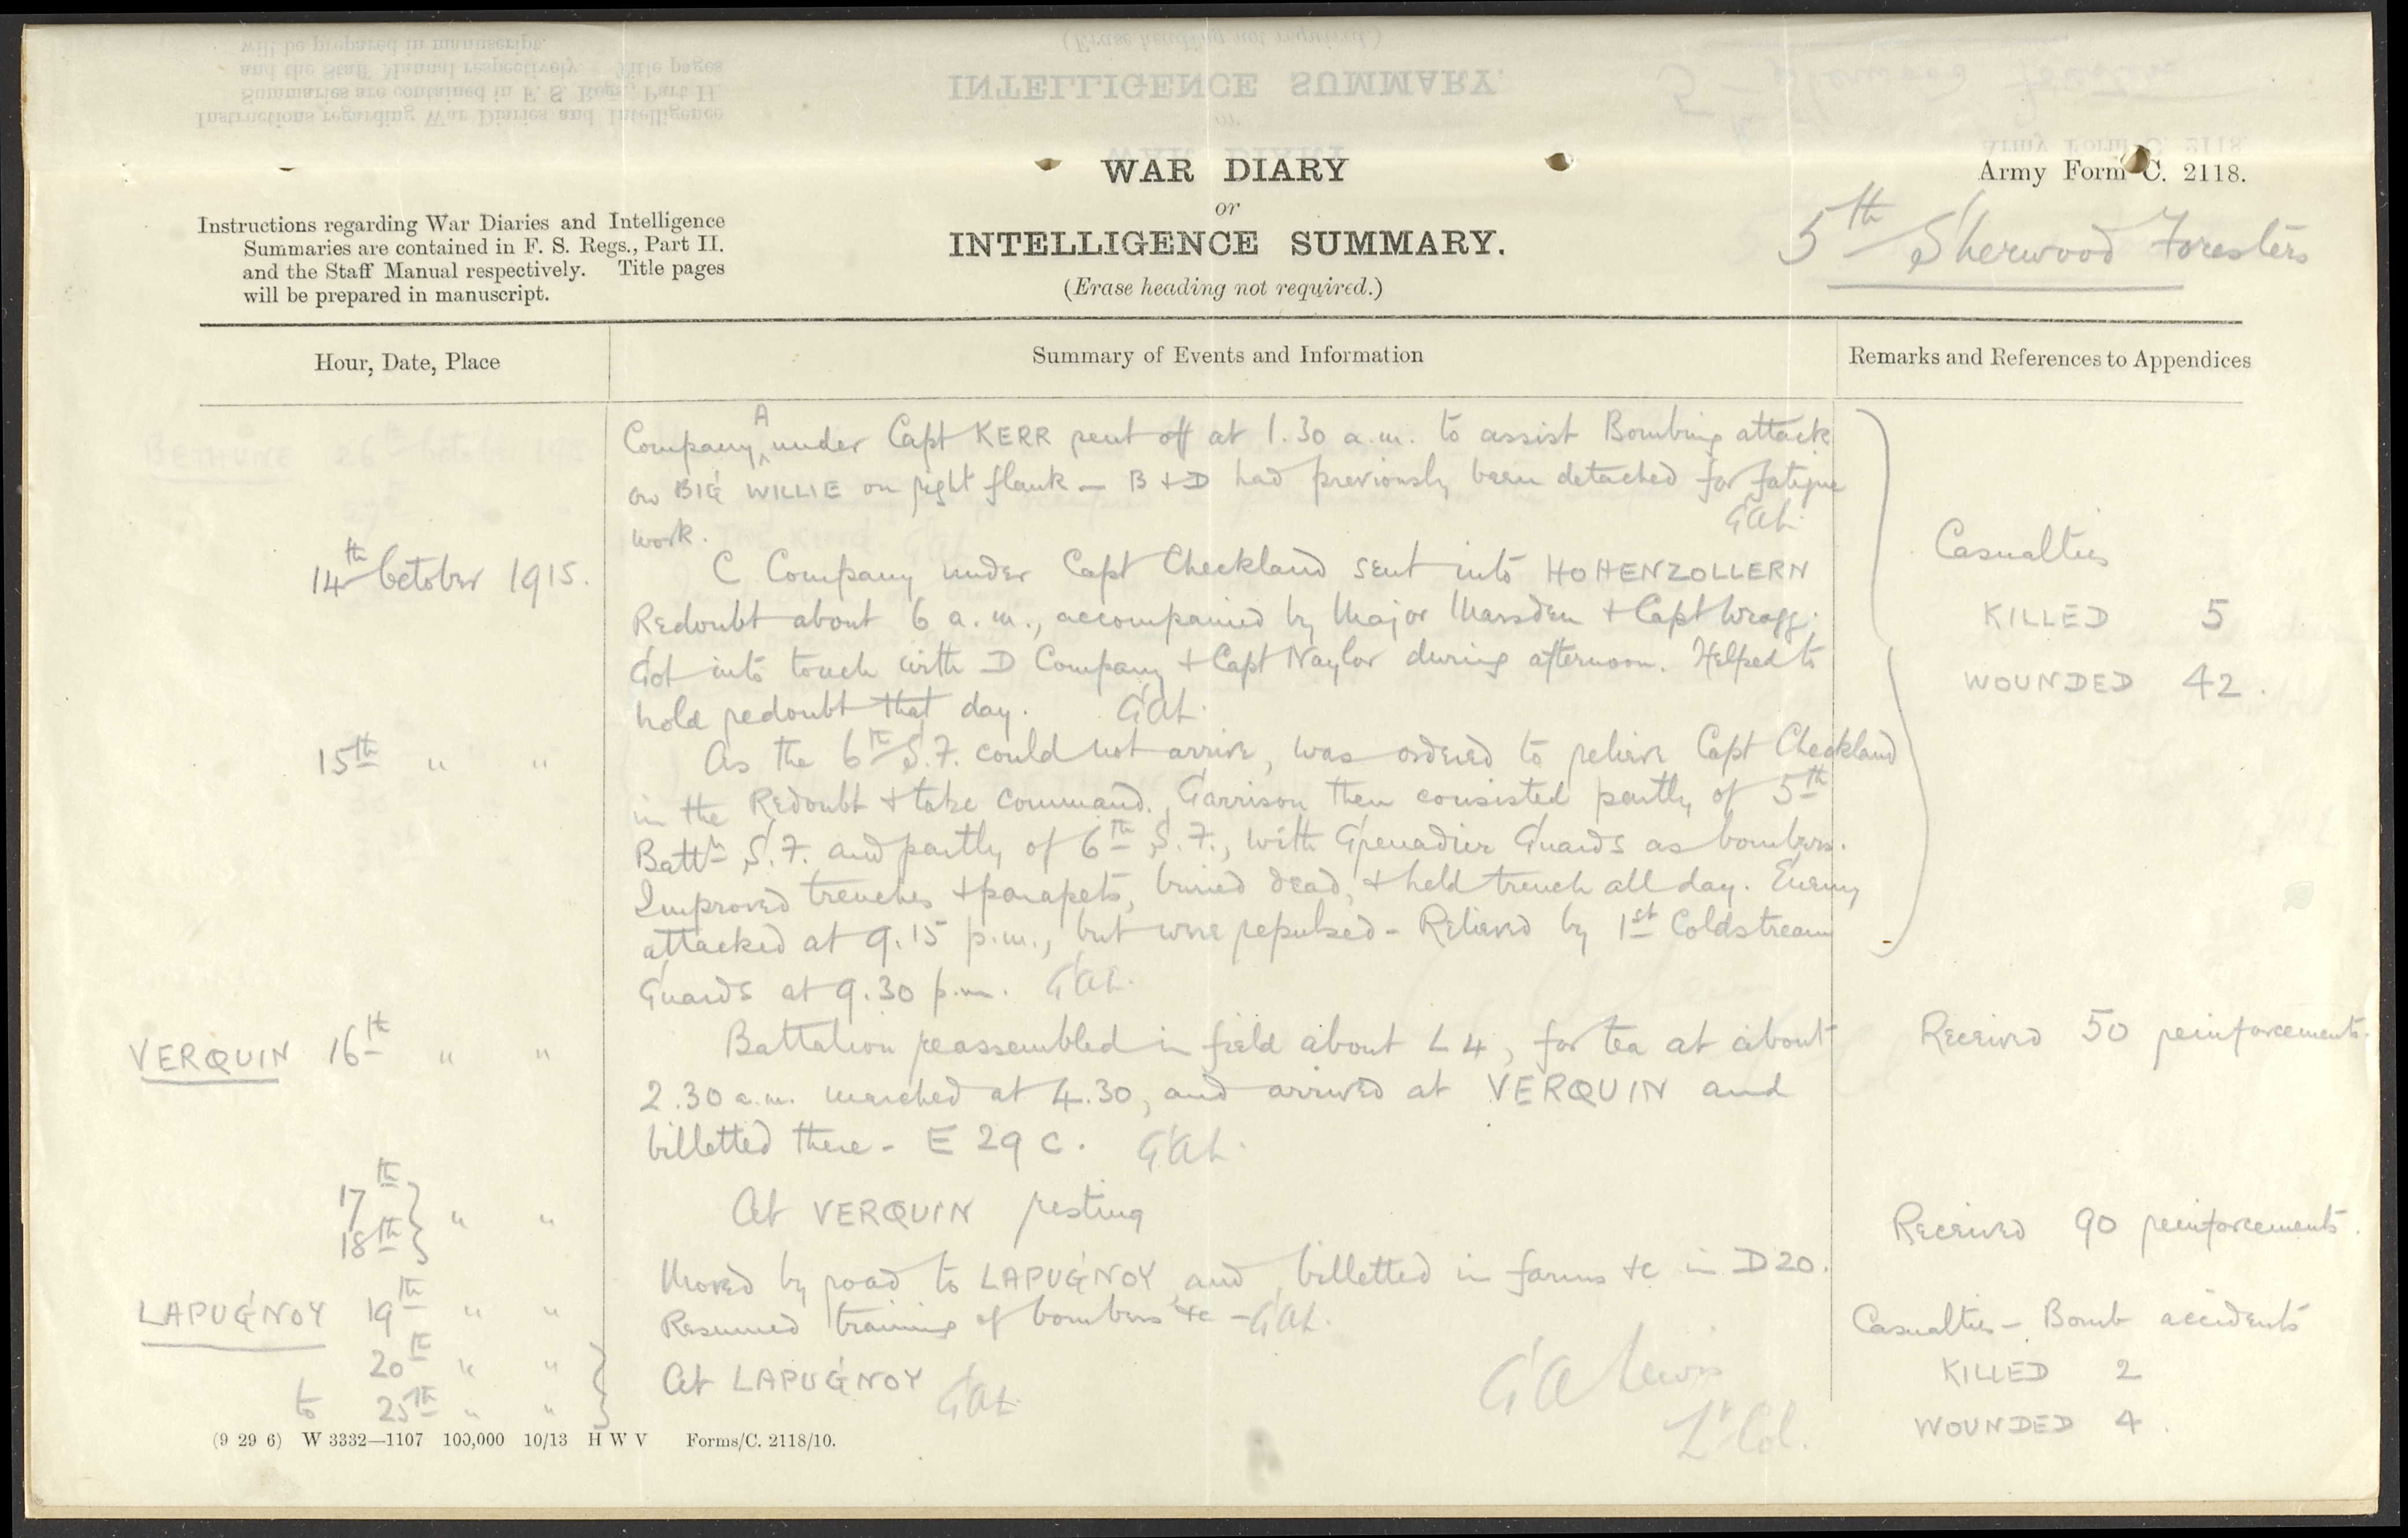 WAR DIARY
or
INTELLIGENCE SUMMARY.
(Erase heading not required.)
Army Form C. 2118.
5th Sherwood Foresters
Instructions regarding War Diaries and Intelligence
Summaries are contained in F. S. Regs., Part II.
and the Staff Manual respectively. Title pages
will be prepared in manuscript.
Hour, Date, Place
Summary of Events and Information
Remarks and References to Appendices
Company A under Capt KERR sent off at 1.30 a.m. to assist Bombing attack
on BIG WILLIE on right flank - B & D had previously been detached for fatigue
work. GAL.
14th October 1915.
C Company under Capt Checkland sent into HOHENZOLLERN
Redoubt about 6 a.m., accompanied by Major Marsden & Capt Wragg.
Got into touch with D Company & Capt Naylor during afternoon. Helped to
hold redoubt that day. GAL.
Casualties
KILLED 5
WOUNDED 42.
15th " "
As the 6th S.F. could not arrive, was ordered to relieve Capt Checkland
in the Redoubt & take command. Garrison then consisted partly of 5th
Battn S.F. and partly of 6th S.F., with Grenadier Guards as bombers.
Improved trenches & parapets, buried dead, & held trench all day. Enemy
attacked at 9.15 p.m., but were repulsed - Relieved by 1st Coldstream
Guards at 9.30 p.m. GAL.
VERQUIN 16th " "
Battalion reassembled in field about L4, for tea at about
2.30 a.m. marched at 4.30, and arrived at VERQUIN and
billetted there - E 29 c. GAL.
Received 50 reinforcements.
17th
18th } " "
At VERQUIN resting
Received 90 reinforcements.
LAPUGNOY 19th " "
Moved by road to LAPUGNOY, and billetted in farms &c in D20.
Resumed training of bombers &c - GAL.
20th " "
to 25th " " }
At LAPUGNOY GAL
Casualties - Bomb accidents
KILLED 2
WOUNDED 4.
G A Lewis
Lt Col.
(9 29 6) W 3332—1107 100,000 10/13 H W V Forms/C. 2118/10.